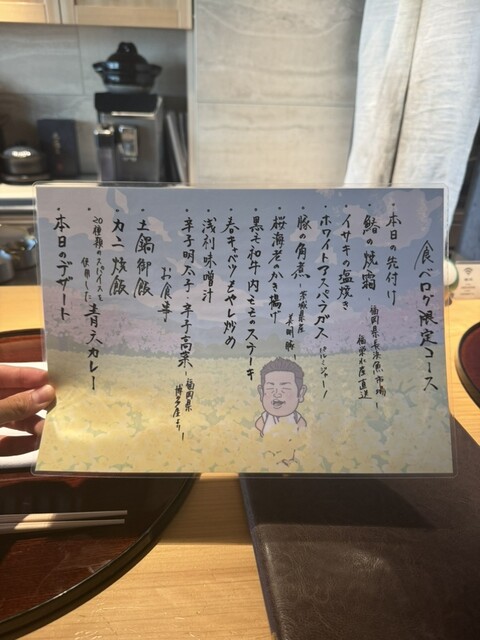 食べログ限定コース
・本日の先付け
・鰆の焼霜
－福岡県長浜魚市場－
直送
・イサキの塩焼き
・ホワイトアスパラガス
・豚の角煮
－茨城県産
美明豚－
・桜海老のかき揚げ
・黒毛和牛内モモのステーキ
・春キャベツともやし炒め
・浅利味噌汁
・辛子明太子・辛子高菜
－福岡県
博多屋より－
お食事
・土鍋御飯
・カニ炊飯
・20種類のスパイスを
使用した
青唐天カレー
・本日のデザート